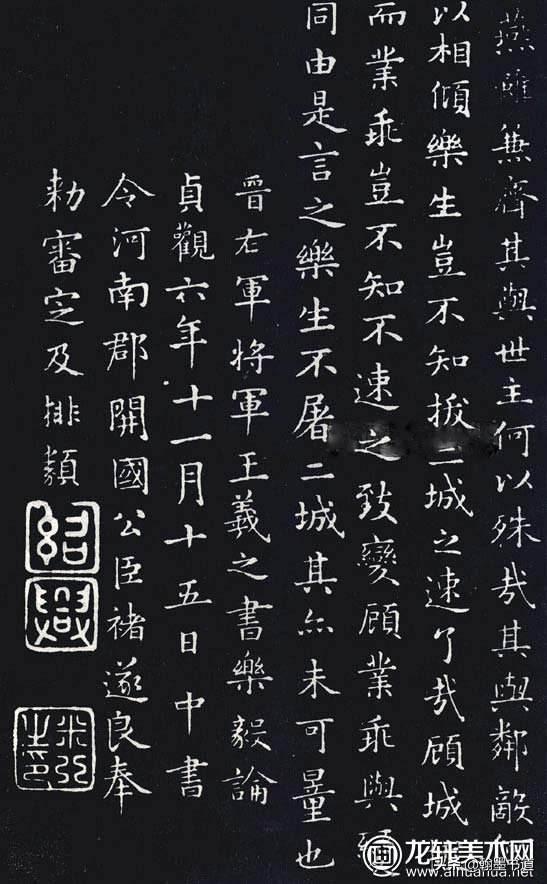 燕雖兼齊其與世主何以殊哉其與鄰敵
以相傾樂生豈不知拔二城之速了哉顧城
而業乖豈不知不速之致變顧業乖與
同由是言之樂生不屠二城其亦未可量也
晉右軍將軍王羲之書樂毅論
貞觀六年十一月十五日中書
令河南郡開國公臣褚遂良奉
勅審定及排類
紹興
米芾之印
龙轩美术网
头条@翰墨书道
www.aihuahua.net